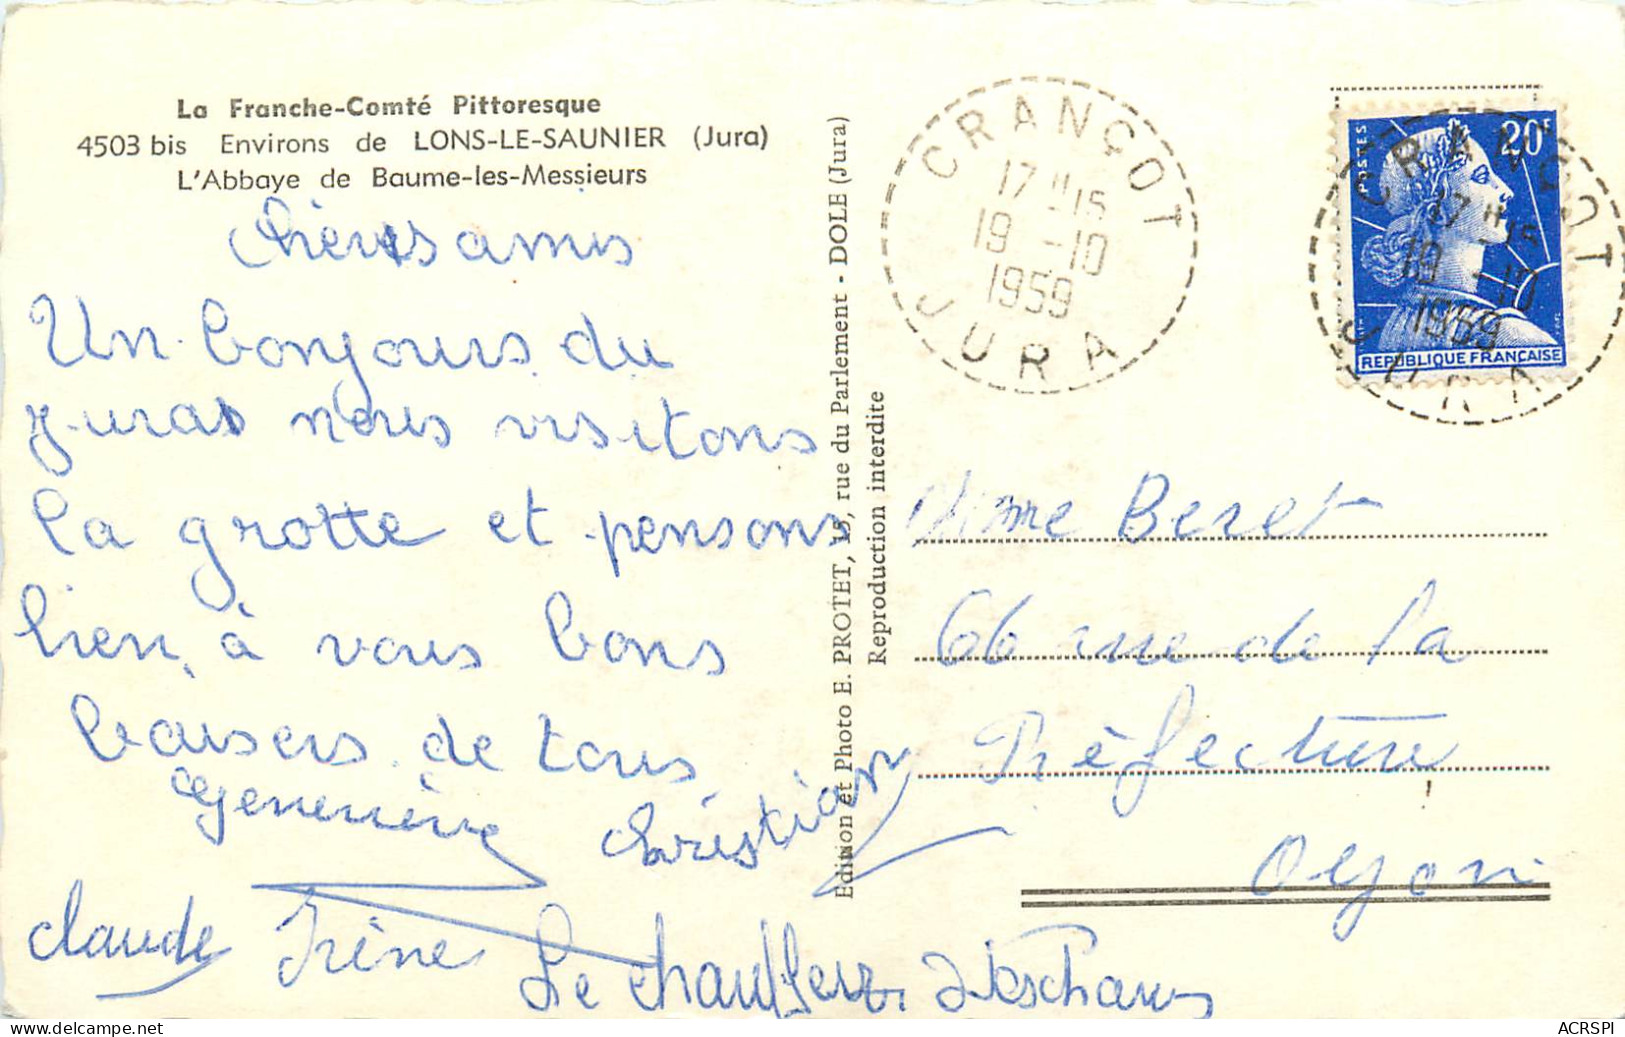 La Franche-Comté Pittoresque
4503 bis Environs de LONS-LE-SAUNIER (Jura)
L'Abbaye de Baume-les-Messieurs
Chèers amis
Un bonjours du
juras nous visitons
la grotte et pensons
bien à vous bons
baisers de tous
Geneviève
Christian
claude Irène Le chauffeur
Edition et Photo E. PROTET, 15, rue du Parlement - DOLE (Jura)
Reproduction interdite
CRANÇOT
17 H 15
19 -10
1959
JURA
POSTES
20F
REPUBLIQUE FRANÇAISE
CRANÇOT
17 H 15
19 -10
1959
JURA
Mme Beret
66 rue de la
Préfecture
Oyon
ACRSPI